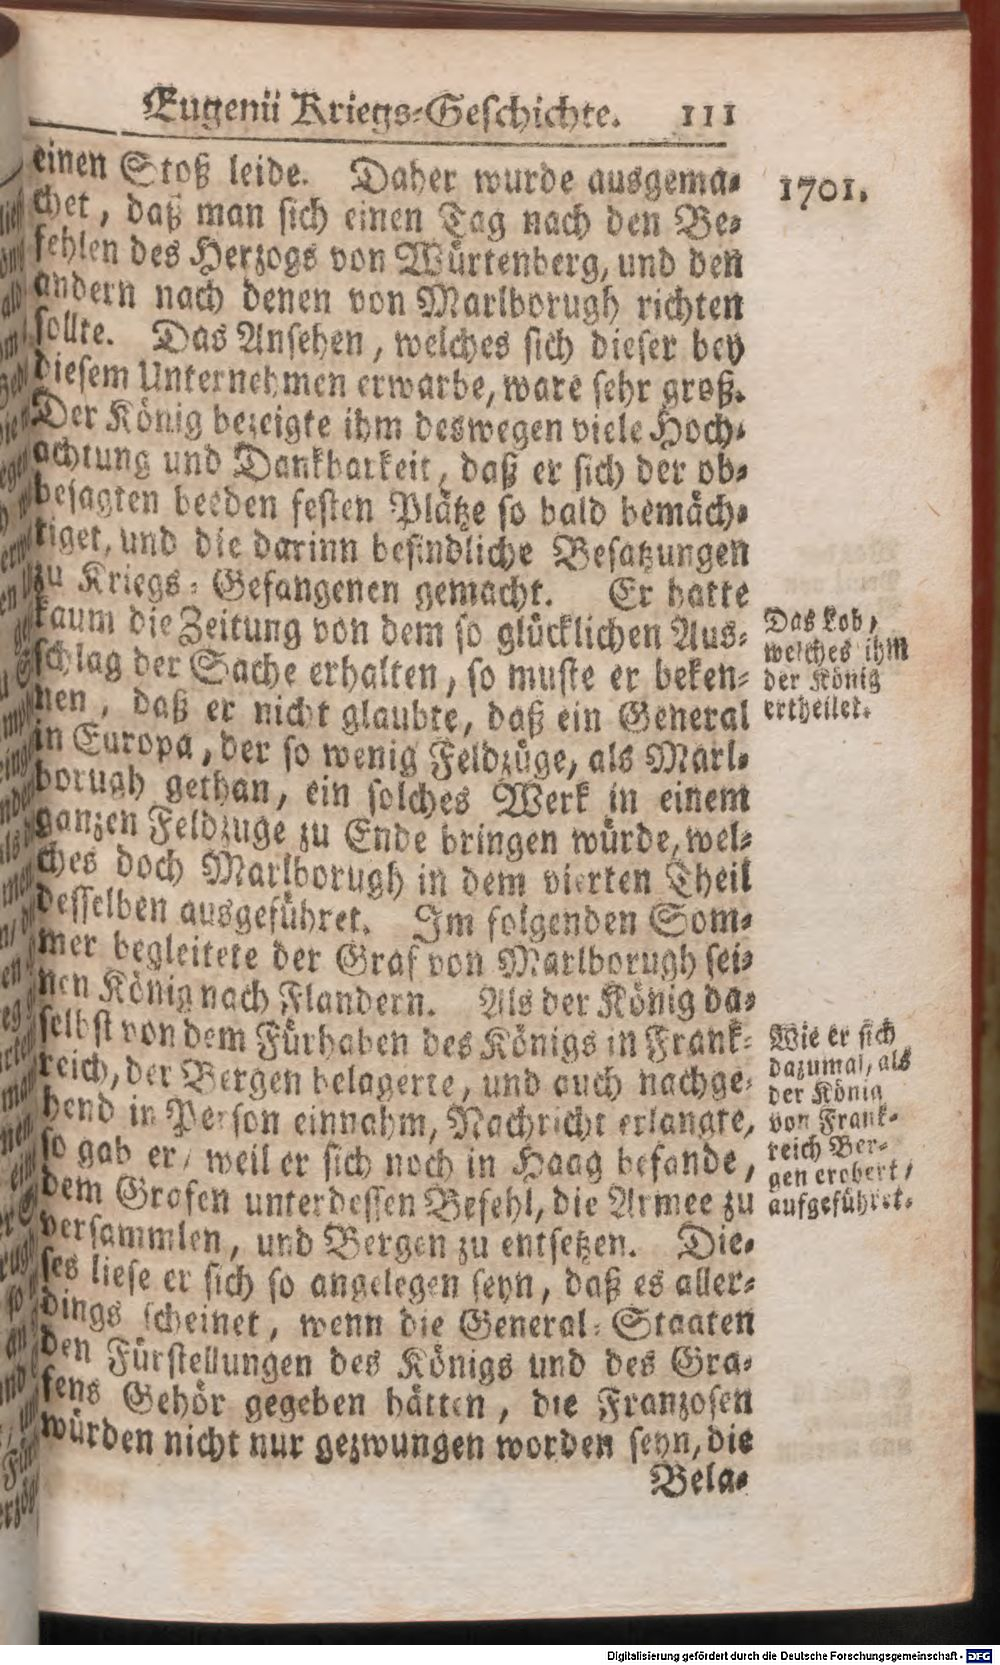 Eugenii Kriegs-Geschichte. 111
1701.
einen Stoß leide. Daher wurde ausgema-
chet, daß man sich einen Tag nach den Be-
fehlen des Herzogs von Würtenberg, und den
andern nach denen von Marlborugh richten
sollte. Das Ansehen, welches sich dieser bey
diesem Unternehmen erwarbe, ware sehr groß.
Der König bezeigte ihm deswegen viele Hoch-
achtung und Dankbarkeit, daß er sich der ob-
besagten beeden festen Plätze so bald bemäch-
tiget, und die darinn befindliche Besatzungen
zu Kriegs-Gefangenen gemacht. Er hatte
kaum die Zeitung von dem so glücklichen Aus-
schlag der Sache erhalten, so muste er beken-
nen, daß er nicht glaubte, daß ein General
in Europa, der so wenig Feldzüge, als Marl-
borugh gethan, ein solches Werk in einem
ganzen Feldzuge zu Ende bringen würde, wel-
ches doch Marlborugh in dem vierten Theil
desselben ausgeführet. Im folgenden Som-
mer begleitete der Graf von Marlborugh sei-
nen König nach Flandern. Als der König da-
selbst von dem Fürhaben des Königs in Frank-
reich, der Bergen belagerte, und auch nachge-
hend in Person einnahm, Nachricht erlangte,
so gab er, weil er sich noch in Haag befande,
dem Grafen unterdessen Befehl, die Armee zu
versammlen, und Bergen zu entsetzen. Die-
ses liese er sich so angelegen seyn, daß es aller-
dings scheinet, wenn die General-Staaten
den Fürstellungen des Königs und des Gra-
fens Gehör gegeben hätten, die Franzosen
würden nicht nur gezwungen worden seyn, die
Bela-
Das Lob,
welches ihm
der König
ertheilet.
Wie er sich
dazumal, als
der König
von Frank-
reich Ber-
gen erobert,
aufgeführet.
Digitalisierung gefördert durch die Deutsche Forschungsgemeinschaft - DFG